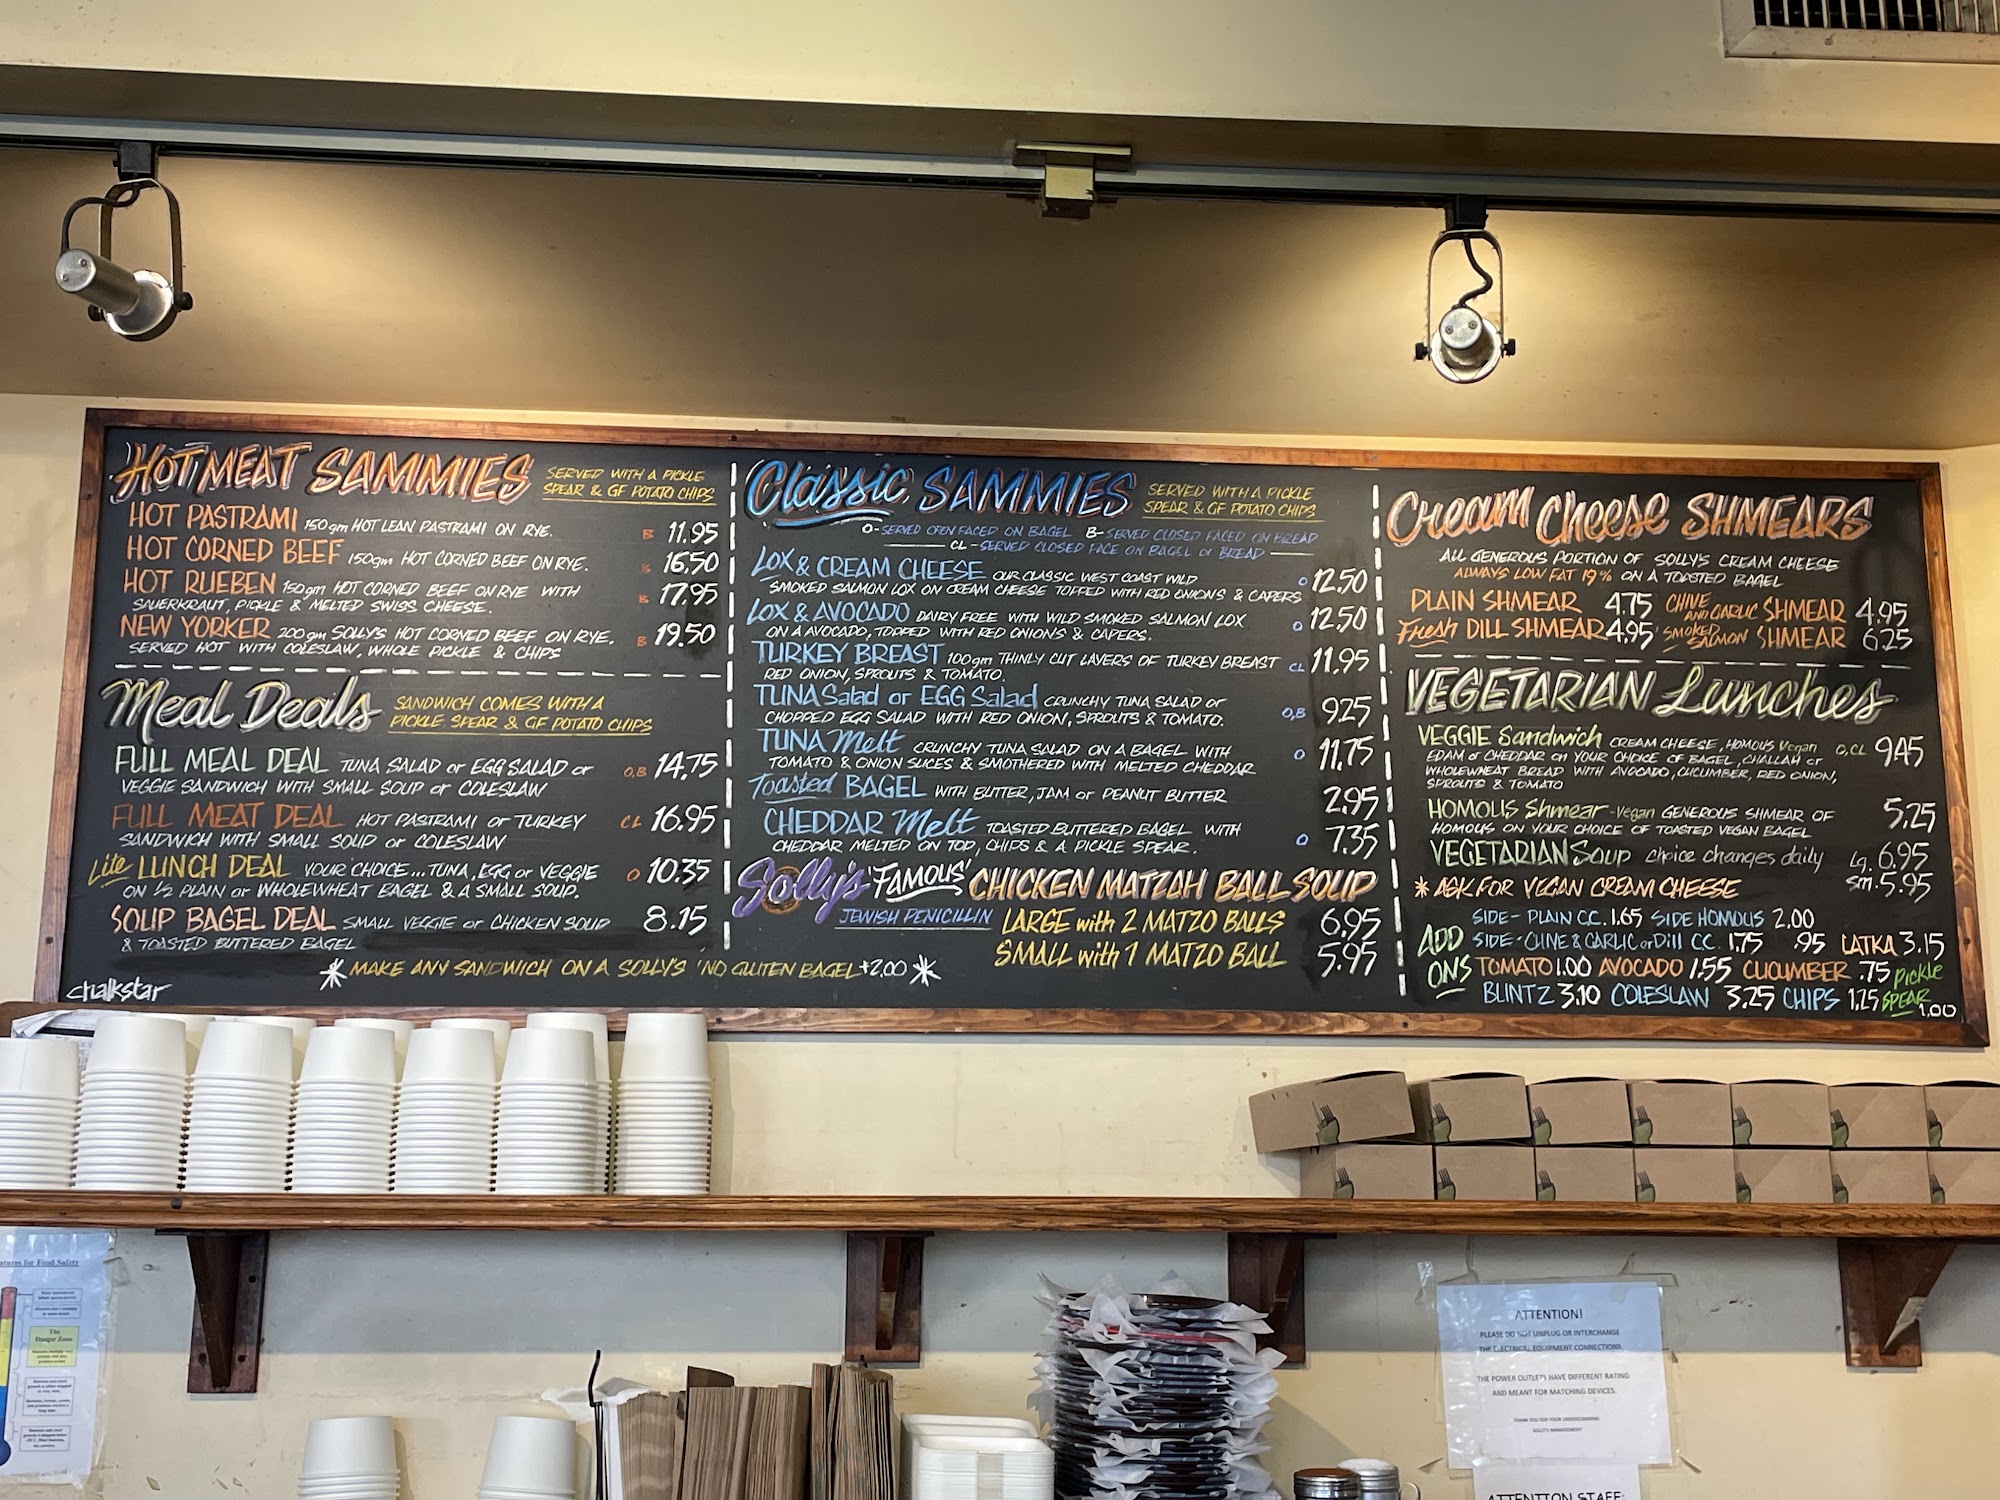 HOT MEAT SAMMIES SERVED WITH A PICKLE
SPEAR & GF POTATO CHIPS
HOT PASTRAMI 150gm HOT LEAN PASTRAMI ON RYE. B 11.95
HOT CORNED BEEF 150gm HOT CORNED BEEF ON RYE. B 16.50
HOT RUEBEN 150gm HOT CORNED BEEF ON RYE WITH B 17.95
SAUERKRAUT, PICKLE & MELTED SWISS CHEESE.
NEW YORKER 200gm SOLLY'S HOT CORNED BEEF ON RYE. B 19.50
SERVED HOT WITH COLESLAW, WHOLE PICKLE & CHIPS
Meal Deals SANDWICH COMES WITH A
PICKLE SPEAR & GF POTATO CHIPS
FULL MEAL DEAL TUNA SALAD or EGG SALAD or O,B 14.75
VEGGIE SANDWICH WITH SMALL SOUP or COLESLAW
FULL MEAT DEAL HOT PASTRAMI OR TURKEY CL 16.95
SANDWICH WITH SMALL SOUP or COLESLAW
Lite LUNCH DEAL YOUR CHOICE...TUNA, EGG or VEGGIE O 10.35
ON 1/2 PLAIN or WHOLEWHEAT BAGEL & A SMALL SOUP.
SOUP BAGEL DEAL SMALL VEGGIE or CHICKEN SOUP 8.15
& TOASTED BUTTERED BAGEL
* MAKE ANY SANDWICH ON A SOLLY'S 'NO GLUTEN BAGEL +2.00 *
chalkstar
Classic SAMMIES SERVED WITH A PICKLE
SPEAR & GF POTATO CHIPS
O-SERVED OPEN FACED ON BAGEL B-SERVED CLOSED FACED ON BREAD
CL-SERVED CLOSED FACE ON BAGEL or BREAD
LOX & CREAM CHEESE OUR CLASSIC WEST COAST WILD O 12.50
SMOKED SALMON LOX ON CREAM CHEESE TOPPED WITH RED ONIONS & CAPERS
LOX & AVOCADO DAIRY FREE WITH WILD SMOKED SALMON LOX O 12.50
ON A AVOCADO, TOPPED WITH RED ONIONS & CAPERS.
TURKEY BREAST 100gm THINLY CUT LAYERS OF TURKEY BREAST CL 11.95
RED ONION, SPROUTS & TOMATO.
TUNA Salad or EGG Salad CRUNCHY TUNA SALAD OR O,B 9.25
CHOPPED EGG SALAD WITH RED ONION, SPROUTS & TOMATO.
TUNA Melt CRUNCHY TUNA SALAD ON A BAGEL WITH O 11.75
TOMATO & ONION SLICES & SMOTHERED WITH MELTED CHEDDAR
Toasted BAGEL WITH BUTTER, JAM or PEANUT BUTTER 2.95
CHEDDAR Melt TOASTED BUTTERED BAGEL WITH O 7.35
CHEDDAR MELTED ON TOP, CHIPS & A PICKLE SPEAR.
Solly's 'FAMOUS' CHICKEN MATZAH BALL SOUP
JEWISH PENICILLIN LARGE with 2 MATZO BALLS 6.95
SMALL with 1 MATZO BALL 5.95
Cream Cheese SHMEARS
ALL GENEROUS PORTION OF SOLLY'S CREAM CHEESE
ALWAYS LOW FAT 19% ON A TOASTED BAGEL
PLAIN SHMEAR 4.75 CHIVE AND GARLIC SHMEAR 4.95
Fresh DILL SHMEAR 4.95 SMOKED SALMON SHMEAR 6.25
VEGETARIAN Lunches
VEGGIE Sandwich CREAM CHEESE, HOMOUS Vegan O,CL 9.45
EDAM or CHEDDAR on YOUR CHOICE OF BAGEL, CHALLAH or
WHOLEWHEAT BREAD WITH AVOCADO, CUCUMBER, RED ONION,
SPROUTS & TOMATO
HOMOUS Shmear - Vegan GENEROUS SHMEAR OF 5.25
HOMOUS ON YOUR CHOICE OF TOASTED VEGAN BAGEL
VEGETARIAN Soup choice changes daily Lg. 6.95
Sm. 5.95
* ASK FOR VEGAN CREAM CHEESE
ADD ONS
SIDE- PLAIN C.C. 1.65 SIDE HOMOUS 2.00
SIDE-CHIVE & GARLIC or Dill CC. 1.75 .95 LATKA 3.15
TOMATO 1.00 AVOCADO 1.55 CUCUMBER .75 Pickle
BLINTZ 3.10 COLESLAW 3.25 CHIPS 1.25 SPEAR 1.00
atures for Food Safety
The
Danger Zone
ATTENTION!
PLEASE DO NOT UNPLUG OR INTERCHANGE
THE ELECTRICAL EQUIPMENT CONNECTIONS
THE POWER OUTLETS HAVE DIFFERENT RATING
AND MEANT FOR MATCHING DEVICES.
THANK YOU FOR YOUR UNDERSTANDING
SOLLY'S MANAGEMENT
ATTENTION STAFF: